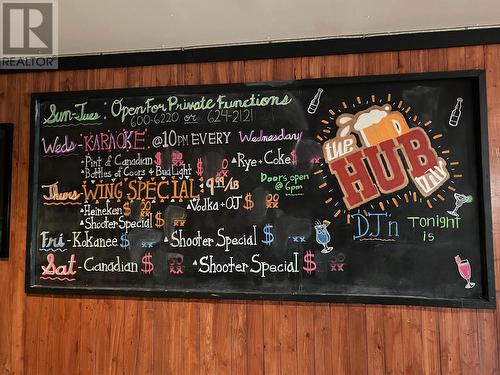 REALTOR®
Sun-Tues Open For Private Functions
600-6220 or 624-2121
Weds KARAOKE @ 10PM EVERY Wednesday
Pint of Canadian $
Bottles of Coors & Bud Light $
Rye + Coke $
Doors open @ 6pm
Thurs WING SPECIAL
Heineken $
Shooter Special $
Vodka + OJ $
Fri - Kokanee $ Shooter Special $
Sat - Canadian $ Shooter Special $
the HUB Inn
DJ'n Tonight
is